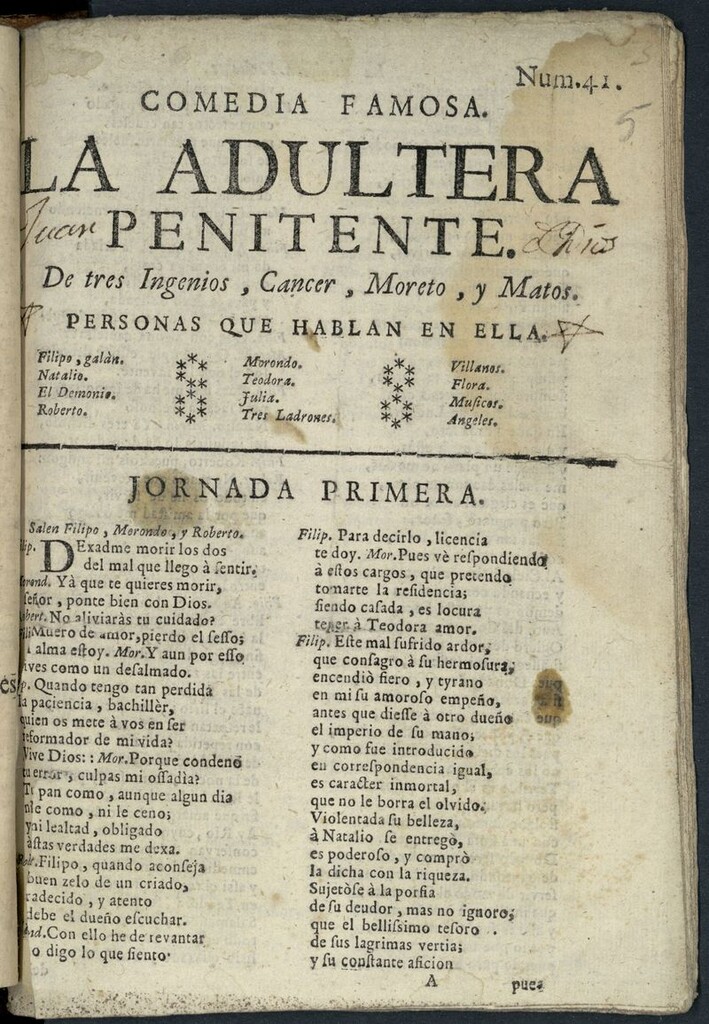 Num.41.
5
COMEDIA FAMOSA.
LA ADULTERA
Juan PENITENTE.
De tres Ingenios, Cancer, Moreto, y Matos.
PERSONAS QUE HABLAN EN ELLA.
Filipo, galàn.
Natalio.
El Demonio.
Roberto.
Morondo.
Teodora.
Julia.
Tres Ladrones.
Villanos.
Flora.
Musicos.
Angeles.
JORNADA PRIMERA.
Salen Filipo, Morondo, y Roberto.
ip. DExadme morir los dos
del mal que llego à sentir.
rond. Yà que te quieres morir,
señor, ponte bien con Dios.
bert. No aliviaràs tu cuidado?
ili Muero de amor, pierdo el seſſo;
l alma eſtoy. Mor. Y aun por eſſo
ives como un deſalmado.
p. Quando tengo tan perdida
la paciencia, bachillèr,
quien os mete à vos en ſer
reformador de mi vida?
Vive Dios:: Mor. Porque condenò
tu error, culpas mi oſſadia?
Tu pan como, aunque algun dia
ni le como, ni le ceno;
y mi lealtad, obligado
aſtas verdades me dexa.
Rob. Filipo, quando aconſeja
buen zelo de un criado,
radecido, y atento
debe el dueño eſcuchar.
Con ello he de revantar
o digo lo que ſiento.
Filip. Para decirlo, licencia
te doy. Mor. Pues vè reſpondiendo
à eſtos cargos, que pretendo
tomarte la reſidencia;
ſiendo caſada, es locura
tener à Teodora amor.
Filip. Eſte mal ſufrido ardor,
que conſagro à ſu hermoſura,
encendiò fiero, y tyrano
en mi ſu amoroſo empeño,
antes que dieſſe à otro dueño
el imperio de ſu mano;
y como fue introducido
en correſpondencia igual,
es caracter inmortal,
que no le borra el olvido.
Violentada ſu belleza,
à Natalio ſe entregò,
es poderoſo, y comprò
la dicha con la riqueza.
Sujetòſe à la porfia
de ſu deudor, mas no ignoro,
que el belliſſimo teſoro
de ſus lagrimas vertia;
y ſu conſtante aficion
A
pues